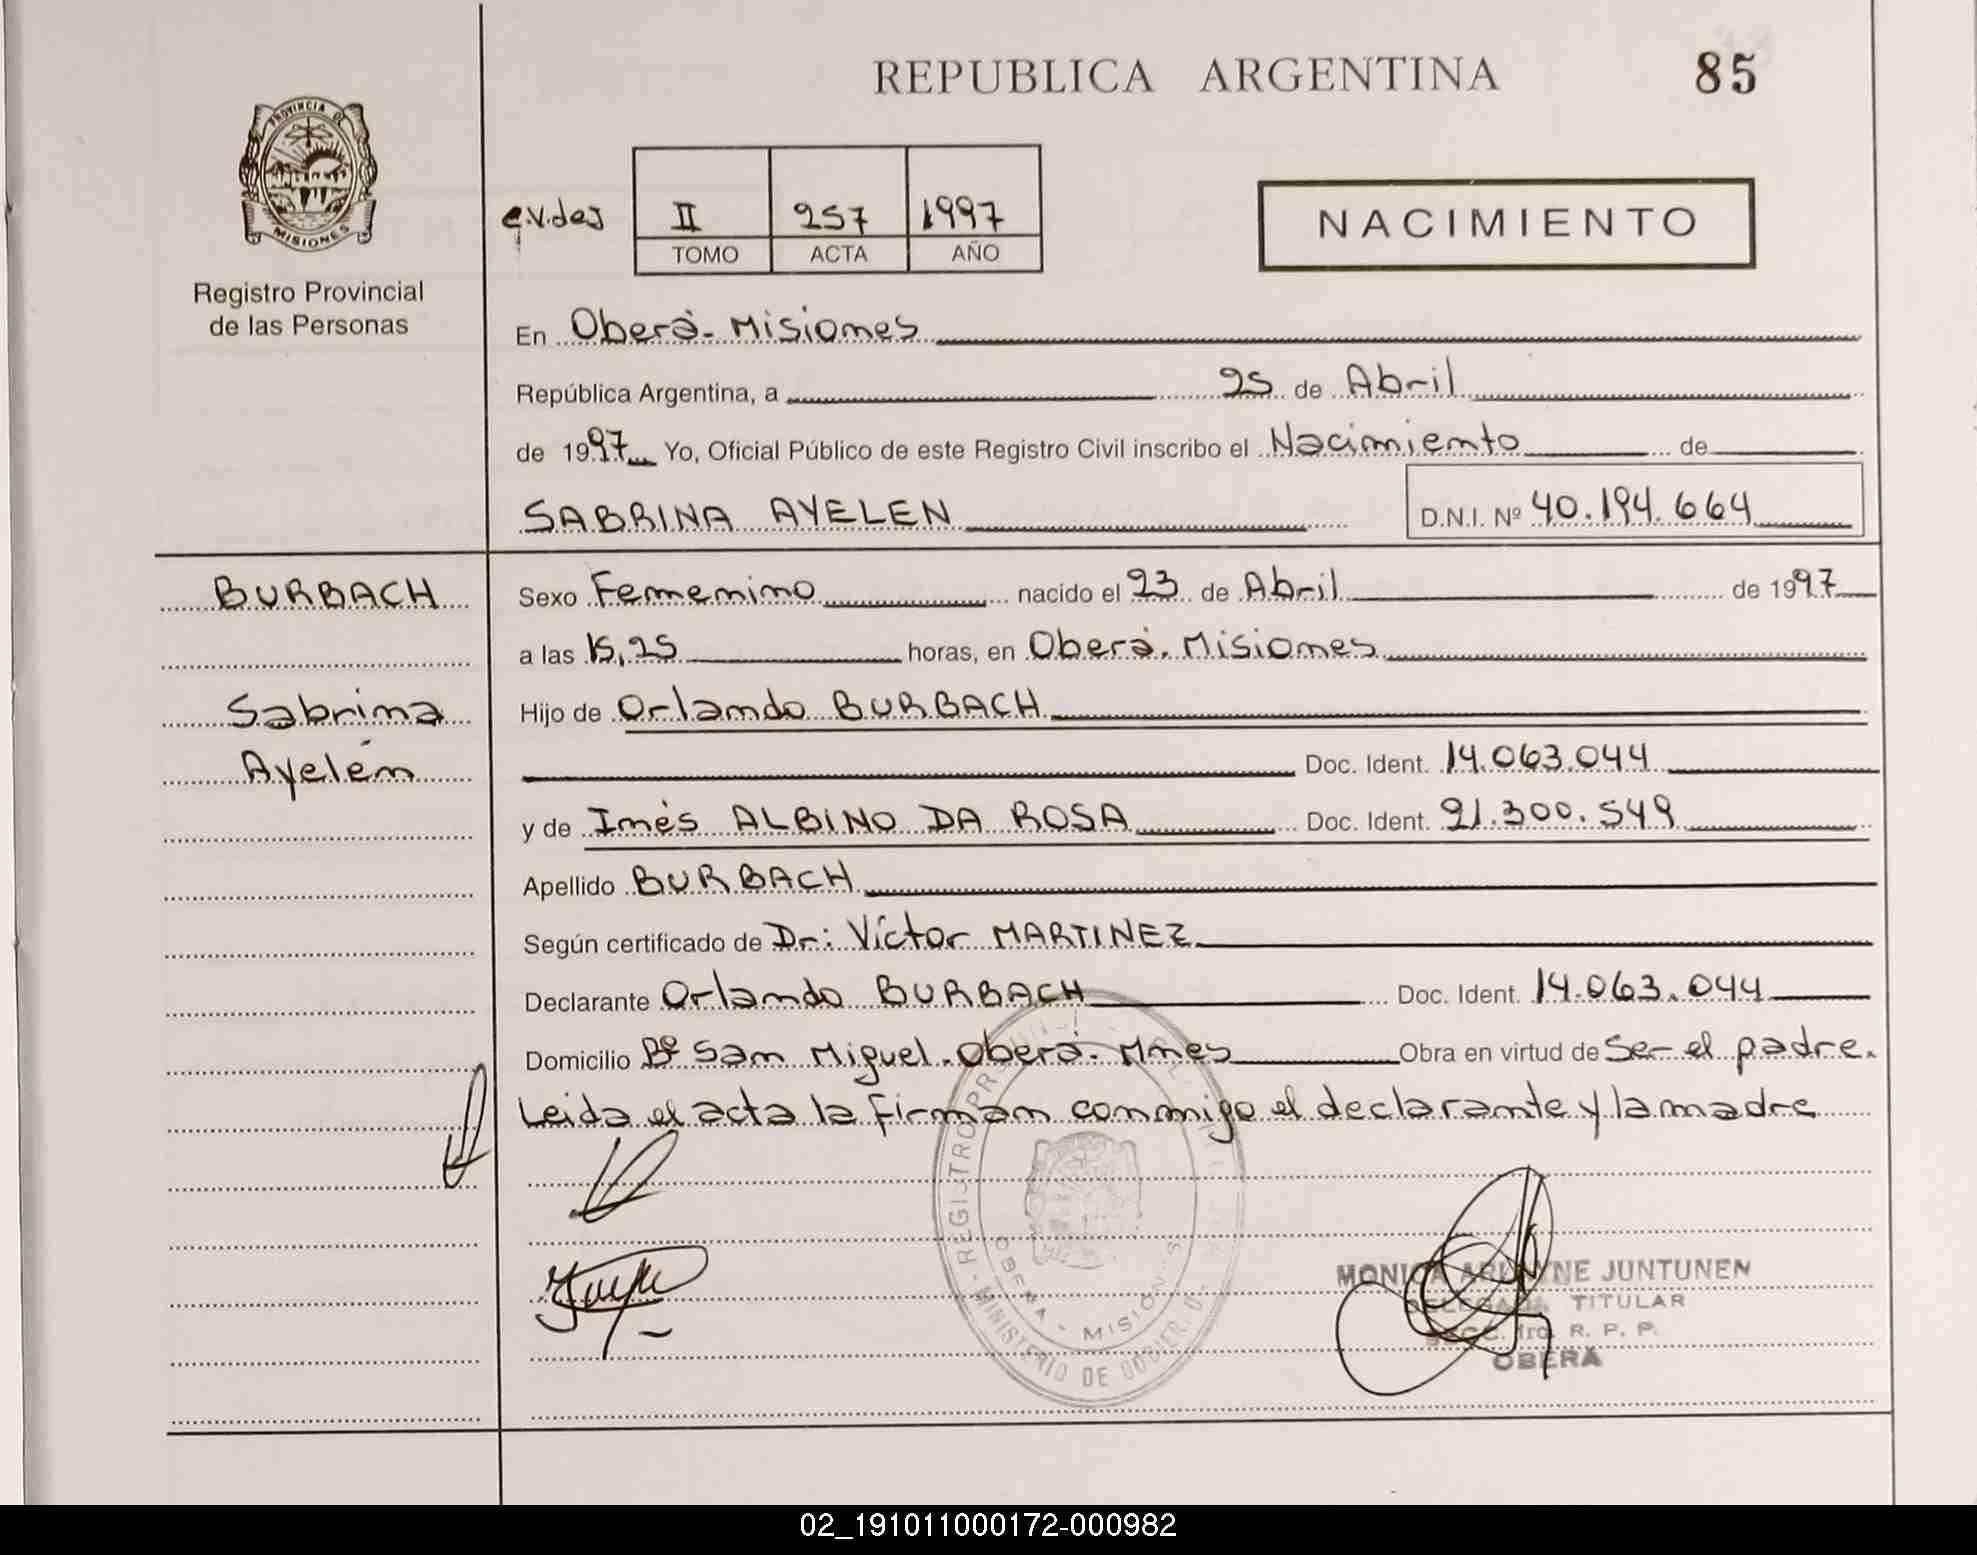 REPUBLICA ARGENTINA 85
PROVINCIA DE
MISIONES
Registro Provincial
de las Personas
II 257 1997
TOMO ACTA AÑO
NACIMIENTO
En Oberá-Misiones
República Argentina, a 25 de Abril
de 1997 Yo, Oficial Público de este Registro Civil inscribo el Nacimiento de
SABRINA AYELEN D.N.I. Nº 40.194.664
BURBACH
Sabrina
Ayelén
Sexo Femenino nacido el 23 de Abril de 1997
a las 15,25 horas, en Oberá. Misiones
Hijo de Orlando BURBACH
Doc. Ident. 14.063.044
y de Inés ALBINO DA ROSA Doc. Ident. 21.300.549
Apellido BURBACH
Según certificado de Dr: Víctor MARTINEZ
Declarante Orlando BURBACH Doc. Ident. 14.063.044
Domicilio Bº San Miguel-Oberá-Mnes Obra en virtud de Ser el padre.
Leida el acta la firman conmigo el declarante y la madre
REGISTRO
MINISTERIO DE GOBIERNO
OBERA - MISIONES
MONICA JUNTUNEN
DELEGADA TITULAR
R. P. P.
OBERA
02_191011000172-000982